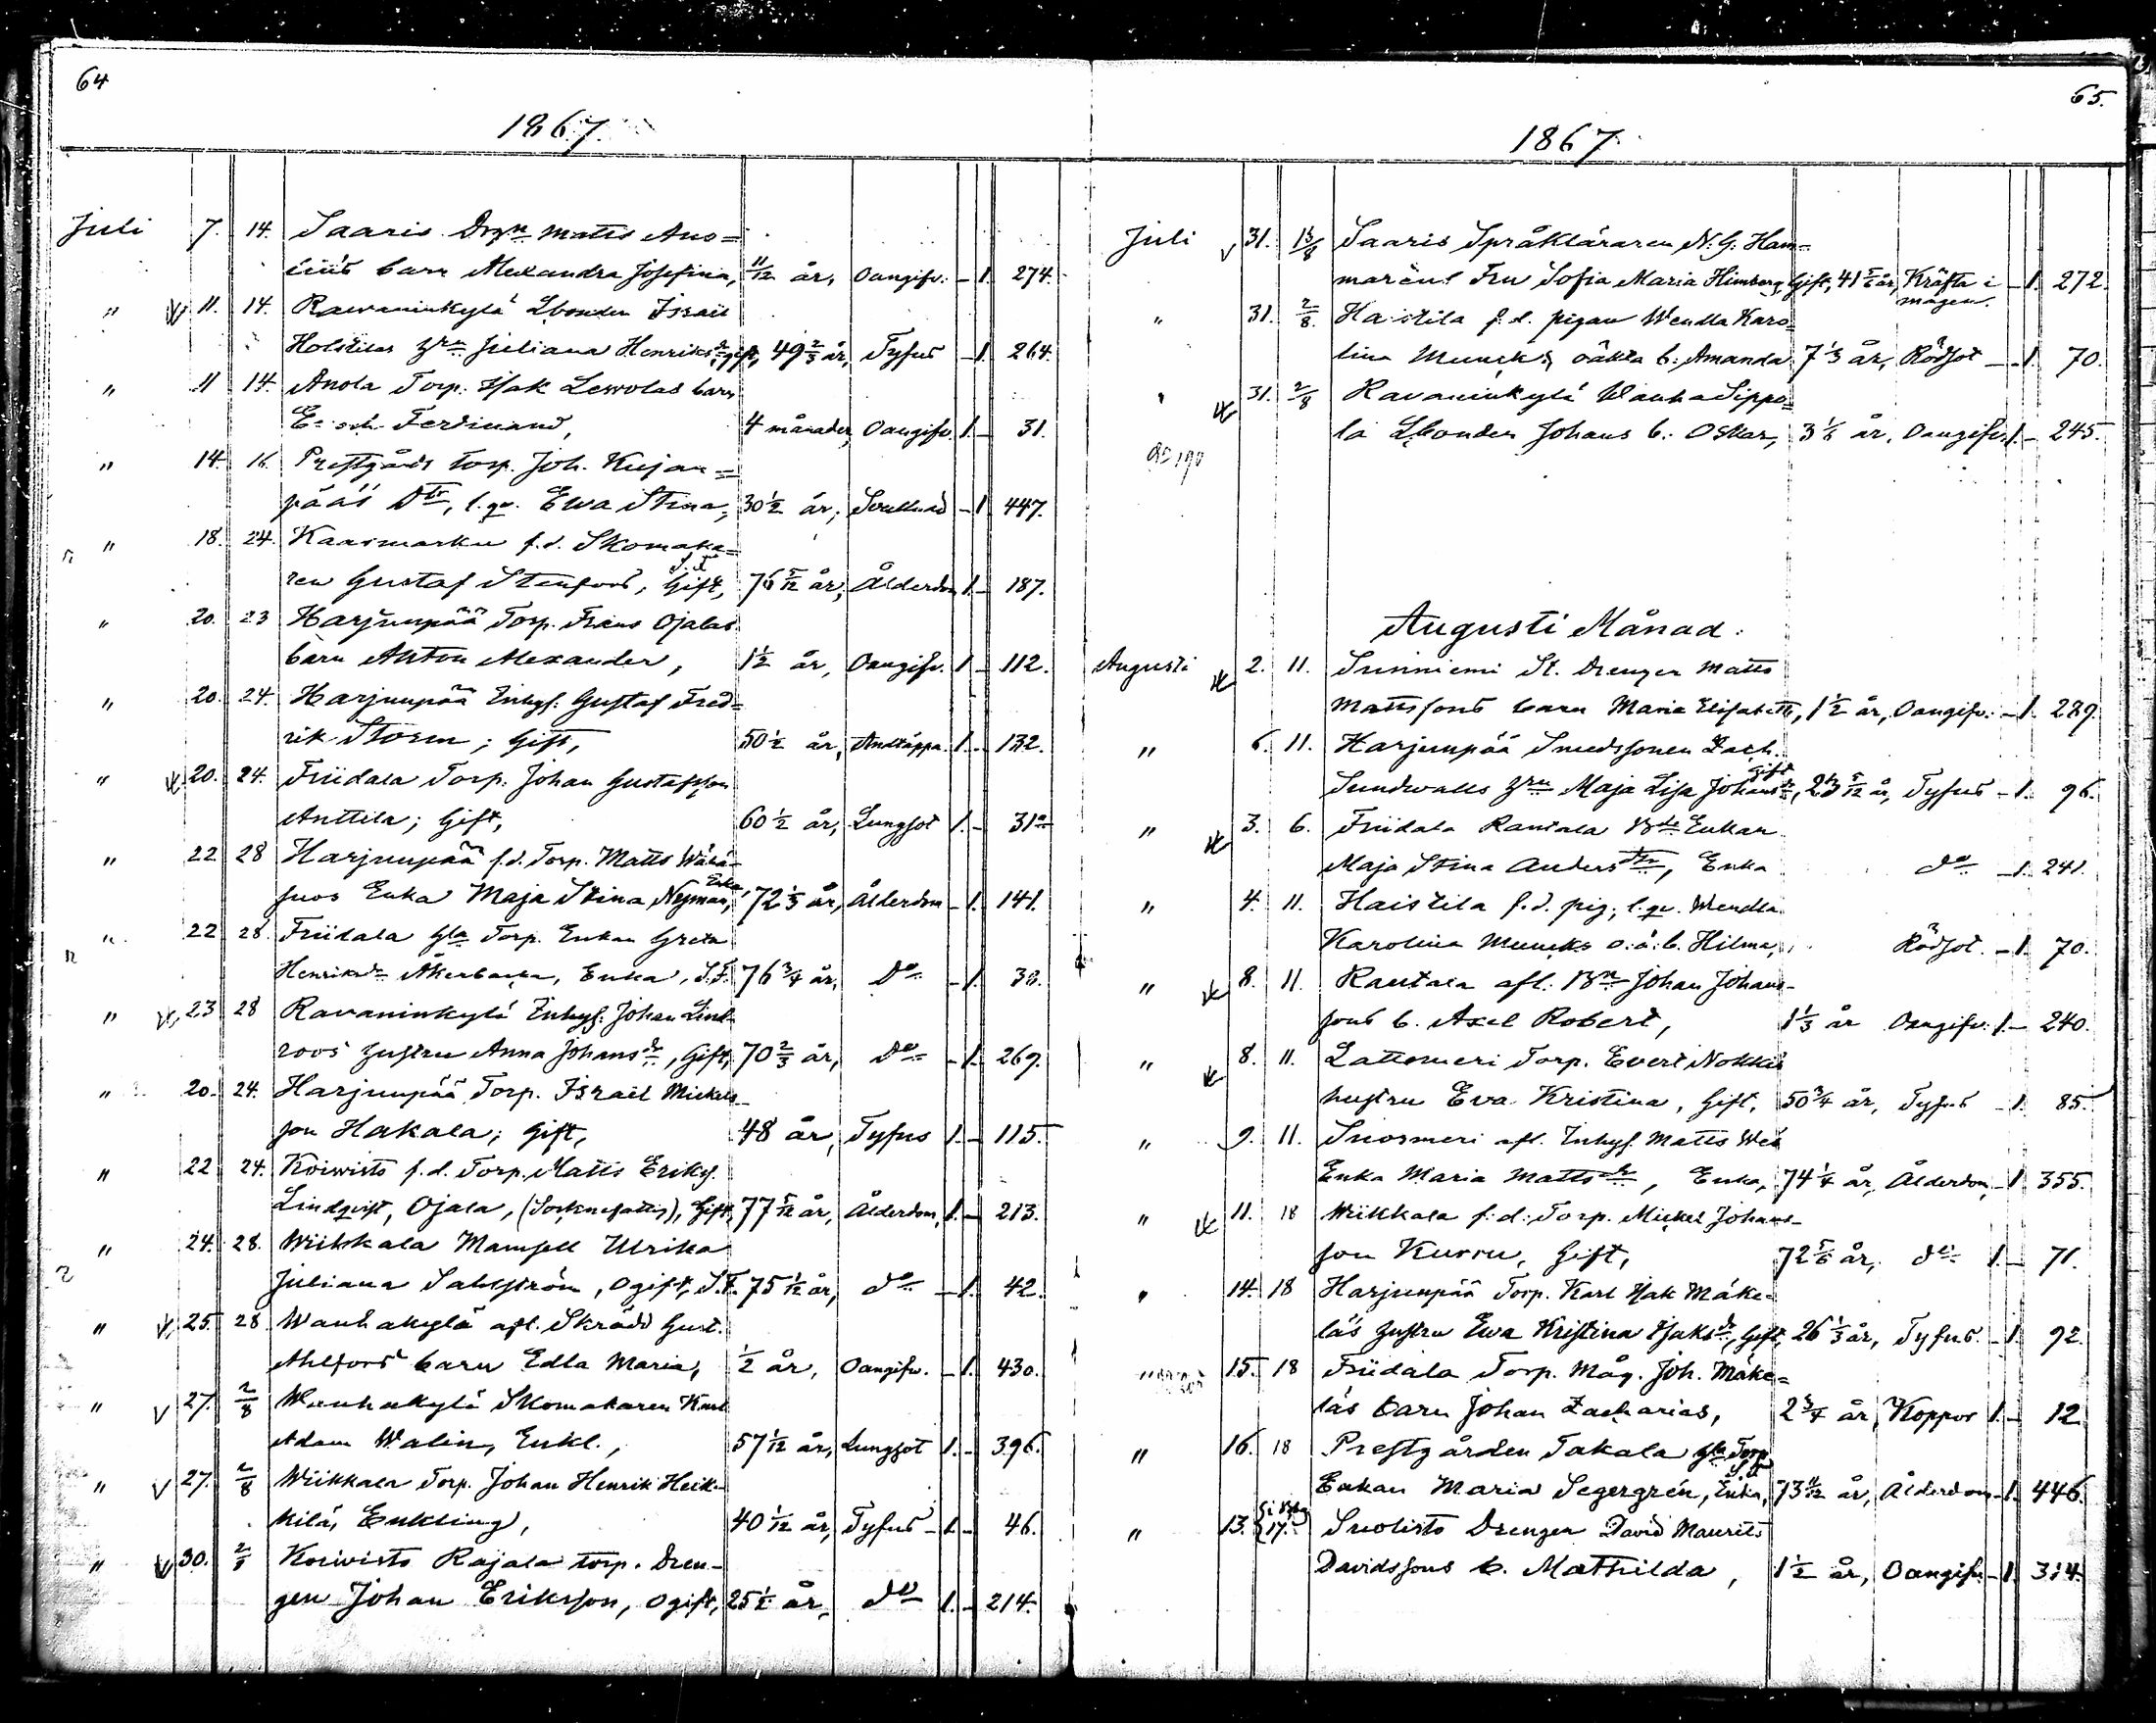 64
1867.
Juli 7. 14. Saaris Drgn Matts Ano=
lius barn Alexandra Josefina, 11/12 år, Oangifv. - 1. 274.
" 11. 14. Ravaninkylä Lbonden Israel
Holstilas Hru Juliana Henriksdr, gift, 49 2/3 år, Tyfus - 1. 264.
" 11 14. Anola Torp. Isak Lewolas barn
E. och Ferdinand, 4 månader, Oangifv. 1. - 31.
" 14. 16. Prestgårds torp. Joh. Kujan=
pääs Dtr, l.qv. Ewa Stina, 30 1/2 år, - 1 447.
" 18. 24. Kaasmarku f.d. Skomaka=
ren Gustaf Stenfors, Gift, S.F. 76 5/12 år, Ålderdom 1. - 187.
" 20. 23 Harjunpää Torp. Frans Ojalas
barn Anton Alexander, 1 1/2 år, Oangifv. 1. - 112.
" 20. 24. Harjunpää Inhys. Gustaf Fred=
rik Storm; Gift, 50 1/2 år, Andtäppa. 1. - 132.
" 20. 24. Friidala Torp. Johan Gustafsson
Anttila; Gift, 60 1/2 år, Lungsot 1. - 31
" 22 28 Harjunpää f.d. Torp. Matts Wähä-
juos Enka Maja Stina Nyman, Enka, 72 1/3 år, Ålderdom - 1. 141.
" 22 28. Friidala Gla Torp. Enkan Greta
Henriksdr Åkerbacka, Enka, S.F. 76 3/4 år, Do - 1. 33.
" 23 28 Ravaninkylä Inhys. Johan Lind-
roos hustru Anna Johansdr, Gift, 70 2/3 år, Do - 1. 269.
" 20. 24. Harjunpää Torp. Israel Mickels-
son Hakala; Gift, 48 år, Tyfus 1. - 115.
" 22 24. Koiwisto f.d. Torp. Matts Eriks.
Lindqvist, Ojala, (Socknefattig), Gift, 77 5/12 år, Ålderdom, 1. - 213.
" 24. 28. Wiikkala Mamsell Ulrika
Juliana Sahlström, Ogift, S.F. 75 1/12 år, do - 1. 42.
" 25. 28. Wanhakylä afl. Skrädd Gust.
Ahlfors barn Edla Maria, 1/2 år, Oangifv. - 1. 430.
" 27. 2/8 Wanhakylä Skomakaren Karl
Adam Walin, Enkl., 57 1/12 år, Lungsot 1. - 396.
" 27. 2/8 Wiikkala Torp. Johan Henrik Heik-
kilä, Enkling, 40 1/12 år, Tyfus - 1. - 46.
" 30. 2/8 Koiwisto Rajala torp. Dren-
gen Johan Eriksson, Ogift, 25 1/2 år, do 1. - 214.
65.
1867.
Juli 31. 13/8 Saaris Språkläraren N. G. Ham=
maréns Fru Sofia Maria Himberg, Gift, 41 5/6 år, Kräfta i magen. - 1. 272.
" 31. 2/8. Haistila f.d. pigan Wendla Karo=
lina Muncks oäkta b. Amanda 7 1/3 år, Rödsot - 1. 70.
" 31. 2/8 Ravaninkylä Wanha Sippo=
la Lbonden Johans b. Oskar, 3 1/6 år, Oangifv. 1. - 245.
Augusti Månad.
Augusti 2. 11. Sunniemi St. Drengen Matts
Mattssons barn Maria Elisabeth, 1 1/2 år, Oangifv. - 1. 289.
" 6. 11. Harjunpää Smedssonen Zach.
Sundwalls Hru Maja Lisa Johansdr, gift 23 5/12 år, Tyfus - 1. 96.
" 3. 6. Friidala Rantala Enkan
Maja Stina Andersdtr, Enka do - 1. 241.
" 4. 11. Haistila f.d. pig., l.qv. Wendla
Karolina Muncks o.ä.b. Hilma, Rödsot. - 1. 70.
" 8. 11. Rantala afl. Bn Johan Johans-
sons b. Axel Robert, 1 1/3 år Oangifv. 1. - 240.
" 8. 11. Lattomeri Torp. Evert Nokkis
hustru Eva Kristina, Gift, 50 3/4 år, Tyfus - 1. 85.
" 9. 11. Suosmeri afl. Inhys. Matts Wes
Enka Maria Mattsdr, Enka, 74 1/4 år, Ålderdom, - 1 355.
" 11. 18 Wiikkala f.d. Torp. Mickel Johans-
son Kurru, Gift, 72 5/6 år, do 1. - 71.
" 14. 18 Harjunpää Torp. Karl Isak Mäke-
läs hustru Ewa Kristina Isaksdr, Gift, 26 1/3 år, Tyfus. - 1. 92.
" 15. 18 Friidala Torp. Måg. Joh. Mäke=
läs barn Johan Zacharias, 2 3/4 år, Koppor 1. - 12
" 16. 18 Prestgården Takala Gla Torp.
Enkan Maria Segergrén, Enka, S.F. 73 11/12 år, Ålderdom - 1. 446.
" 13. 17. Suolisto Drengen David Maurits
Davidssons b. Mathilda, 1 1/2 år, Oangifv. - 1. 314.